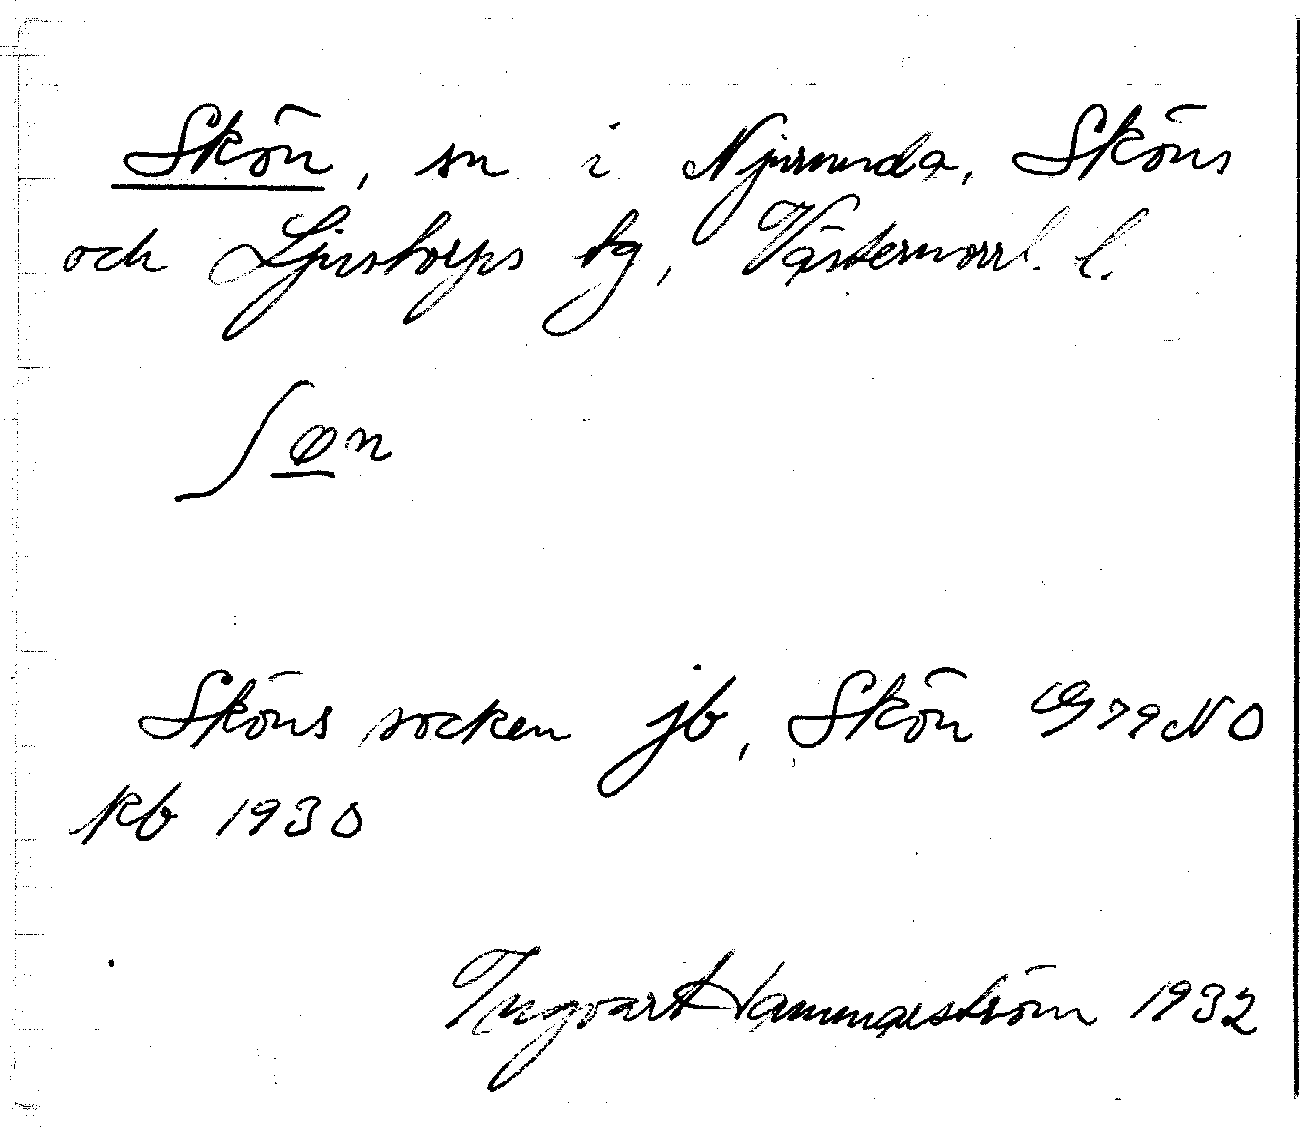 Skön, sn i Njurunda, Sköns
och Ljustorps tg, Västernorrl. l.
ʃøn
Sköns socken jb, Skön G 79 NO
kb 1930
Ingvar Hammarström 1932